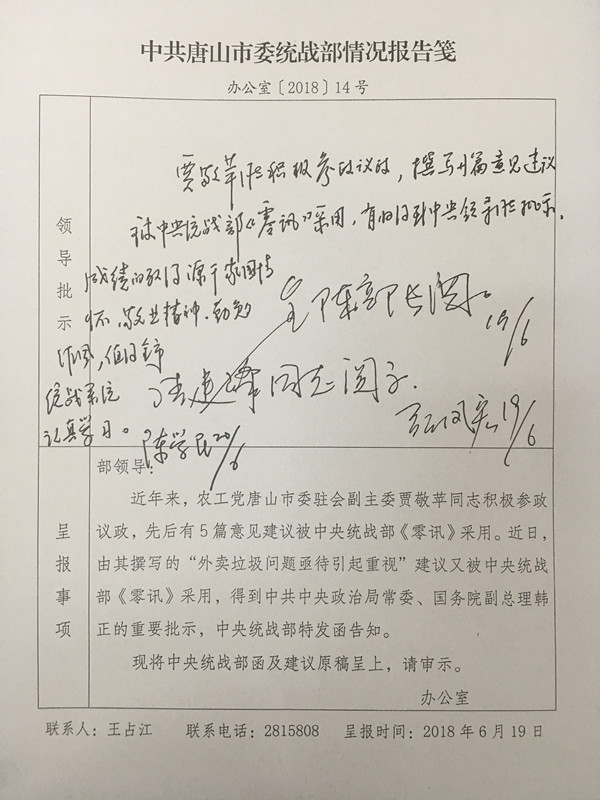 中共唐山市委统战部情况报告笺
办公室〔2018〕14号
领导批示
贾敬苹同志积极参政议政，撰写几篇意见建议
被中央统战部《零讯》采用，有的得到中央领导同志批示。
成绩的取得源于家国情
怀、敬业精神、勤勉
作风，值得
统战系统
认真学习。
陈学民 20/6
呈 陈部长阅。
19/6
建 同志阅示.
19/6
呈报事项
部领导：
近年来，农工党唐山市委驻会副主委贾敬苹同志积极参政
议政，先后有5篇意见建议被中央统战部《零讯》采用。近日，
由其撰写的“外卖垃圾问题亟待引起重视”建议又被中央统战
部《零讯》采用，得到中共中央政治局常委、国务院副总理韩
正的重要批示，中央统战部特发函告知。
现将中央统战部函及建议原稿呈上，请审示。
办公室
联系人：王占江 联系电话：2815808 呈报时间：2018年6月19日